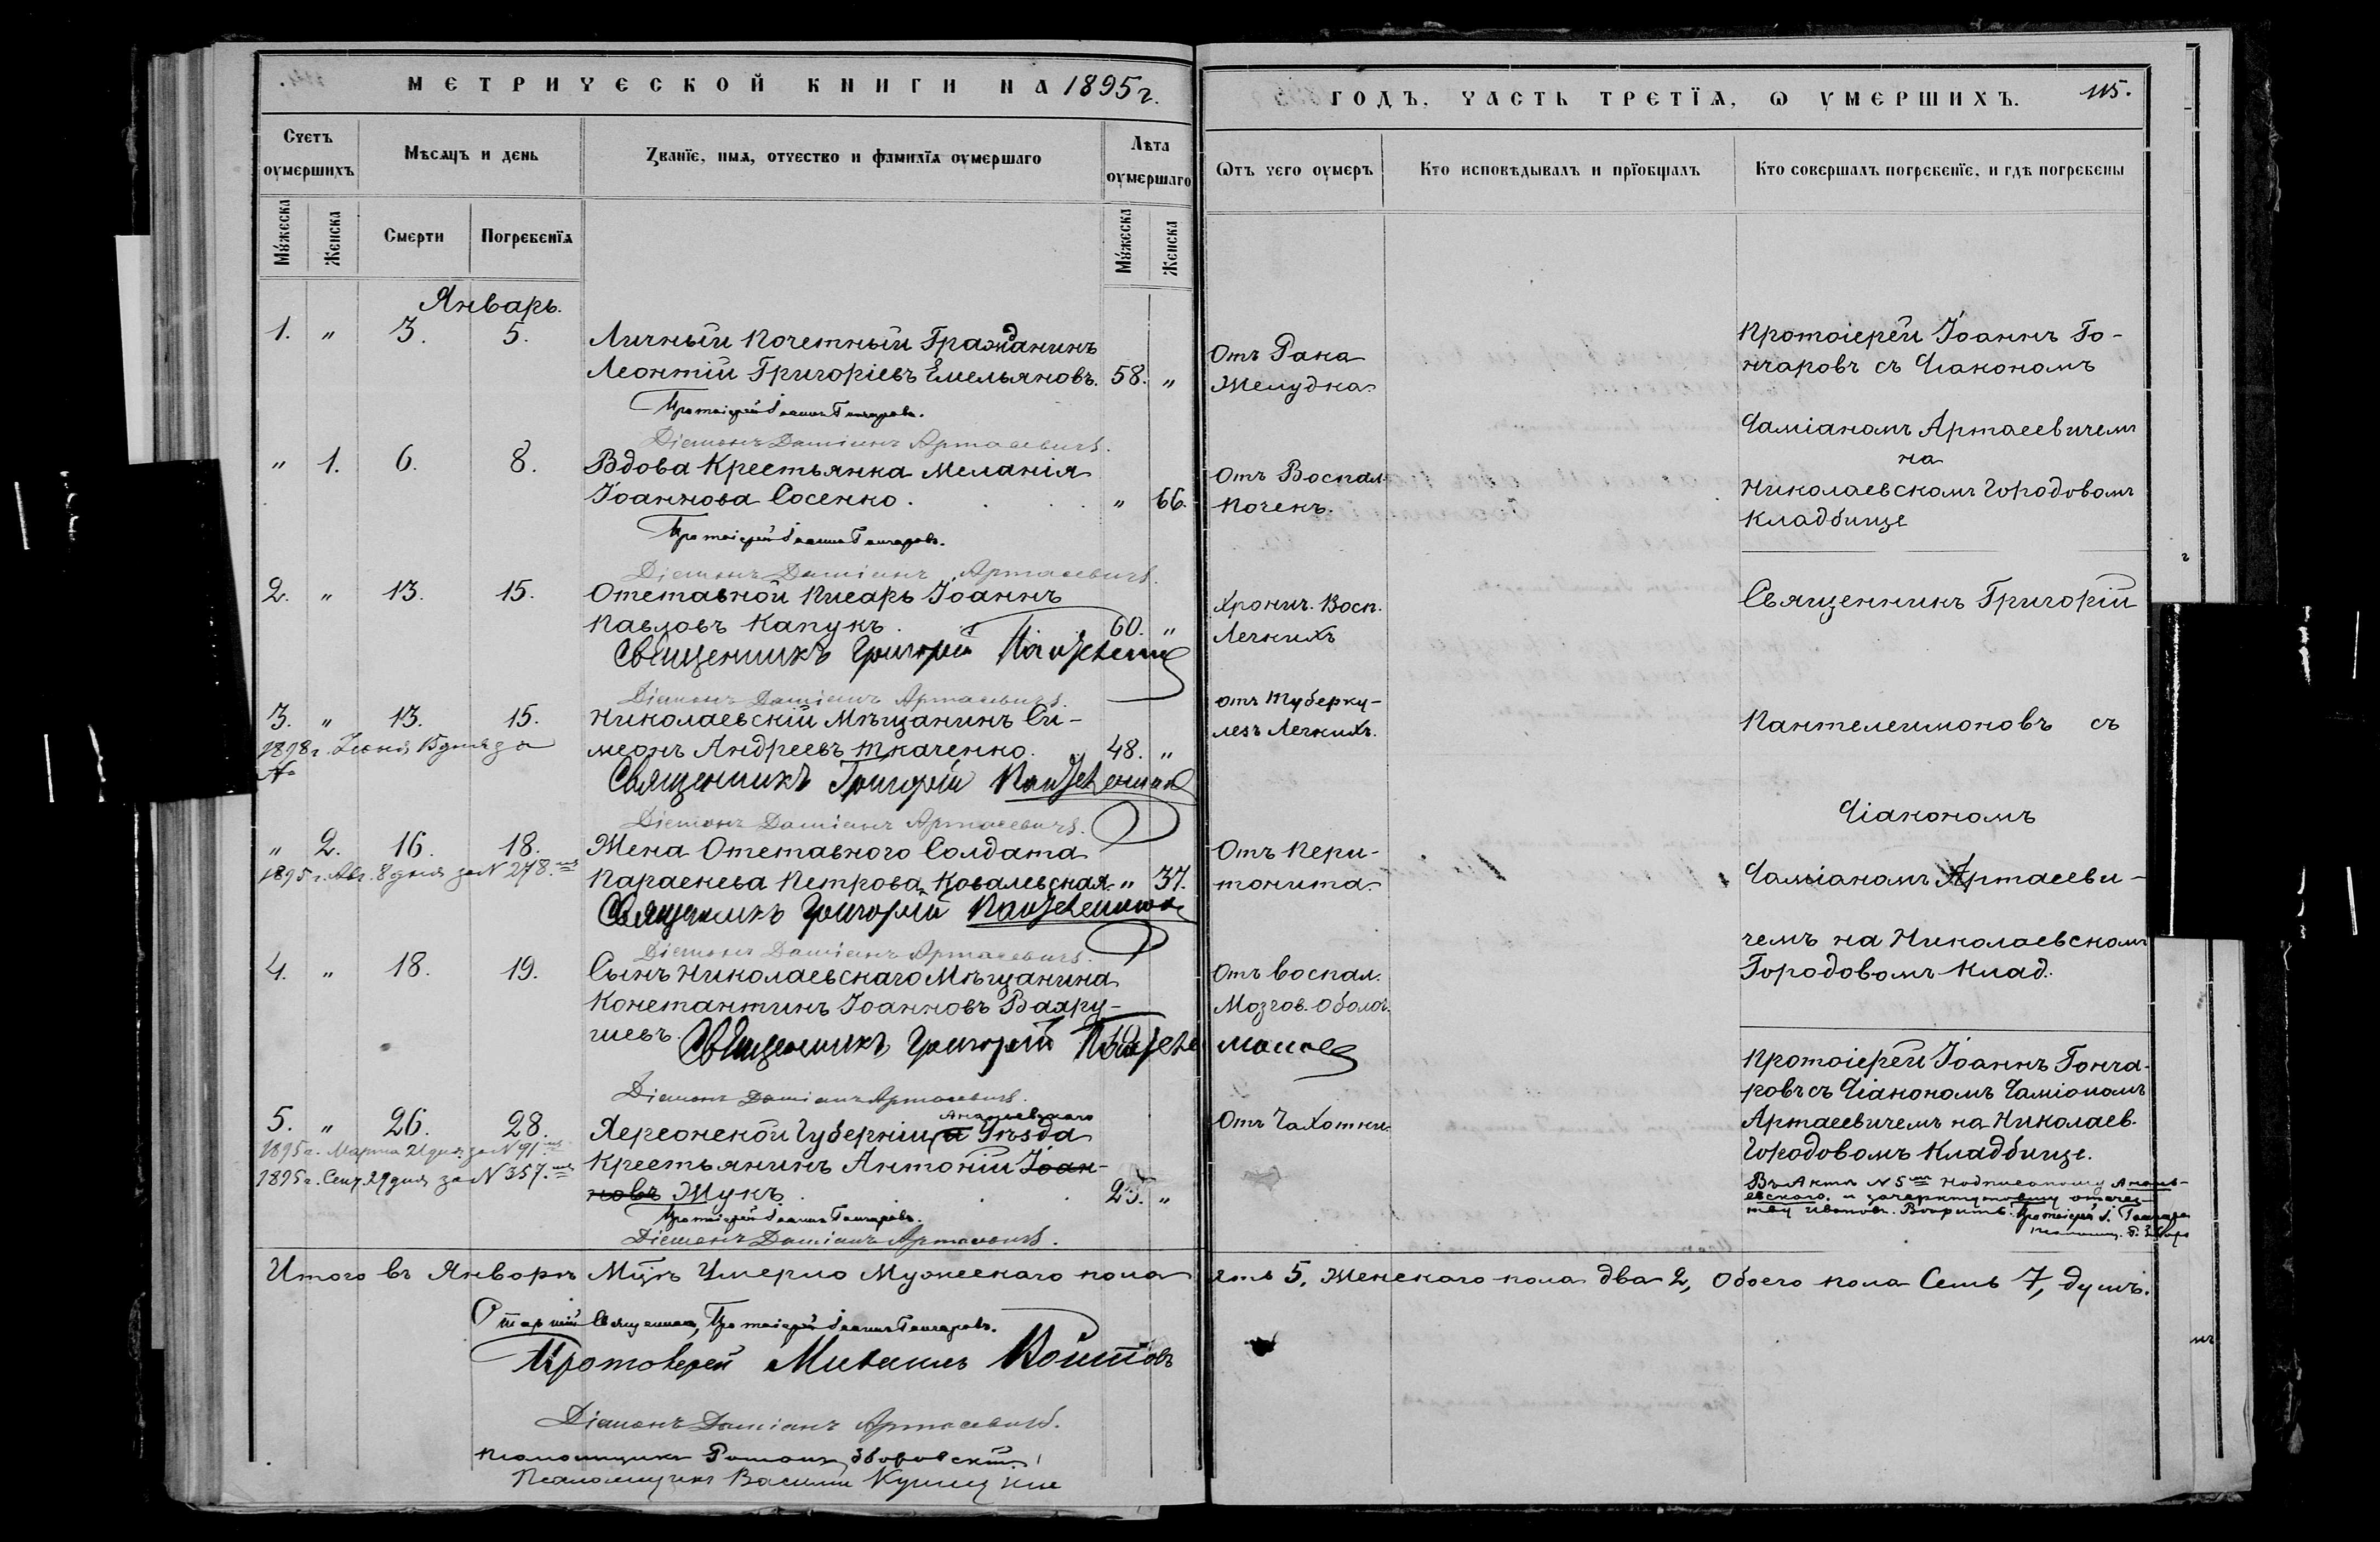 МЕТРИЧЕСКОЙ КНИГИ НА 1895 г.
Счетъ оумершихъ
Мѣсяцъ и день
Званїе, имя, отчество и фамилїя оумершаго
Лѣта оумершаго
Мужеска
Женска
Смерти
Погребенїя
Мужеска
Женска
Январь.
1. " 3. 5. Личный Почетный Гражданинъ
Леонтій Григоріевъ Емельяновъ. 58. "
Протоіерей Іоаннъ Гончаровъ.
Діаконъ Даміанъ Артасевичъ.
" 1. 6. 8. Вдова Крестьянка Меланія
Іоаннова Сосенко. " 66.
Протоіерей Іоаннъ Гончаровъ.
Діаконъ Даміанъ Артасевичъ.
2. " 13. 15. Отставной Писарь Іоаннъ
Павловъ Капукъ. 60. "
Священникъ Григорій
Діаконъ Даміанъ Артасевичъ.
3. " 13. 15. Николаевскій Мѣщанинъ Си-
1898 г. Іюня 15 дня за меонъ Андреевъ Ткаченко. 48. "
№
Священникъ Григорій
Діаконъ Даміанъ Артасевичъ.
" 2. 16. 18. Жена Отставного Солдата
1895 г. Авг. 8 дня за № 278. Параскева Петрова Ковалевская. " 37.
Священникъ Григорій
Діаконъ Даміанъ Артасевичъ.
4. " 18. 19. Сынъ Николаевскаго Мѣщанина
Константинъ Іоанновъ Вахру-
шевъ.
Священникъ Григорій
Діаконъ Даміанъ Артасевичъ.
Ананьевскаго
5. " 26. 28. Херсонской Губерніи, и Уѣзда
1895 г. Марта 21 дня за № 91.
Крестьянинъ Антоній Іоан-
1895 г. Сент. 29 дня за № 357.
новъ Жукъ. 25. "
Протоіерей Іоаннъ Гончаровъ.
Діаконъ Даміанъ Артасевичъ.
Итого въ Январѣ М-цѣ Умерло Мужескаго пола
Старшій Священникъ, Протоіерей Іоаннъ Гончаровъ.
Протоіерей Михаилъ
Діаконъ Даміанъ Артасевичъ.
Псаломщикъ Романъ Зборовскій
Псаломщикъ Василій
ГОДЪ, ЧАСТЬ ТРЕТЇЯ, Ѡ УМЕРШИХЪ. 115.
Ѿтъ чего оумеръ
Кто исповѣдывалъ и прїобщалъ
Кто совершалъ погребенїе, и гдѣ погребены
Отъ Рака
Желудка
Отъ Воспал.
Почекъ.
Хронич. Восп.
Легкихъ
отъ Туберку-
лезъ Легкихъ.
Отъ Пери-
тонита
Отъ воспал.
Мозгов. Оболоч.
Отъ Чахотки
Протоіерей Іоаннъ Го-
нчаровъ съ Діакономъ
Даміаномъ Артасевичемъ
на
Николаевскомъ Городовомъ
Кладбище
Священникъ Григорій
Пантелеимоновъ съ
Діакономъ
Даміаномъ Артасеви-
чемъ на Николаевскомъ
Городовомъ Клад.
Протоіерей Іоаннъ Гонча-
ровъ съ Діакономъ Даміаномъ
Артасевичемъ на Николаев.
Городовомъ Кладбище.
Въ Актѣ № 5 Надписанному Анань-
евскаго. и зачеркнутому отчес-
тву Ивановъ. Вѣрить. Протоіерей І. Гончаров
ять 5, Женскаго пола два 2, Обоего пола Семь 7, душъ.